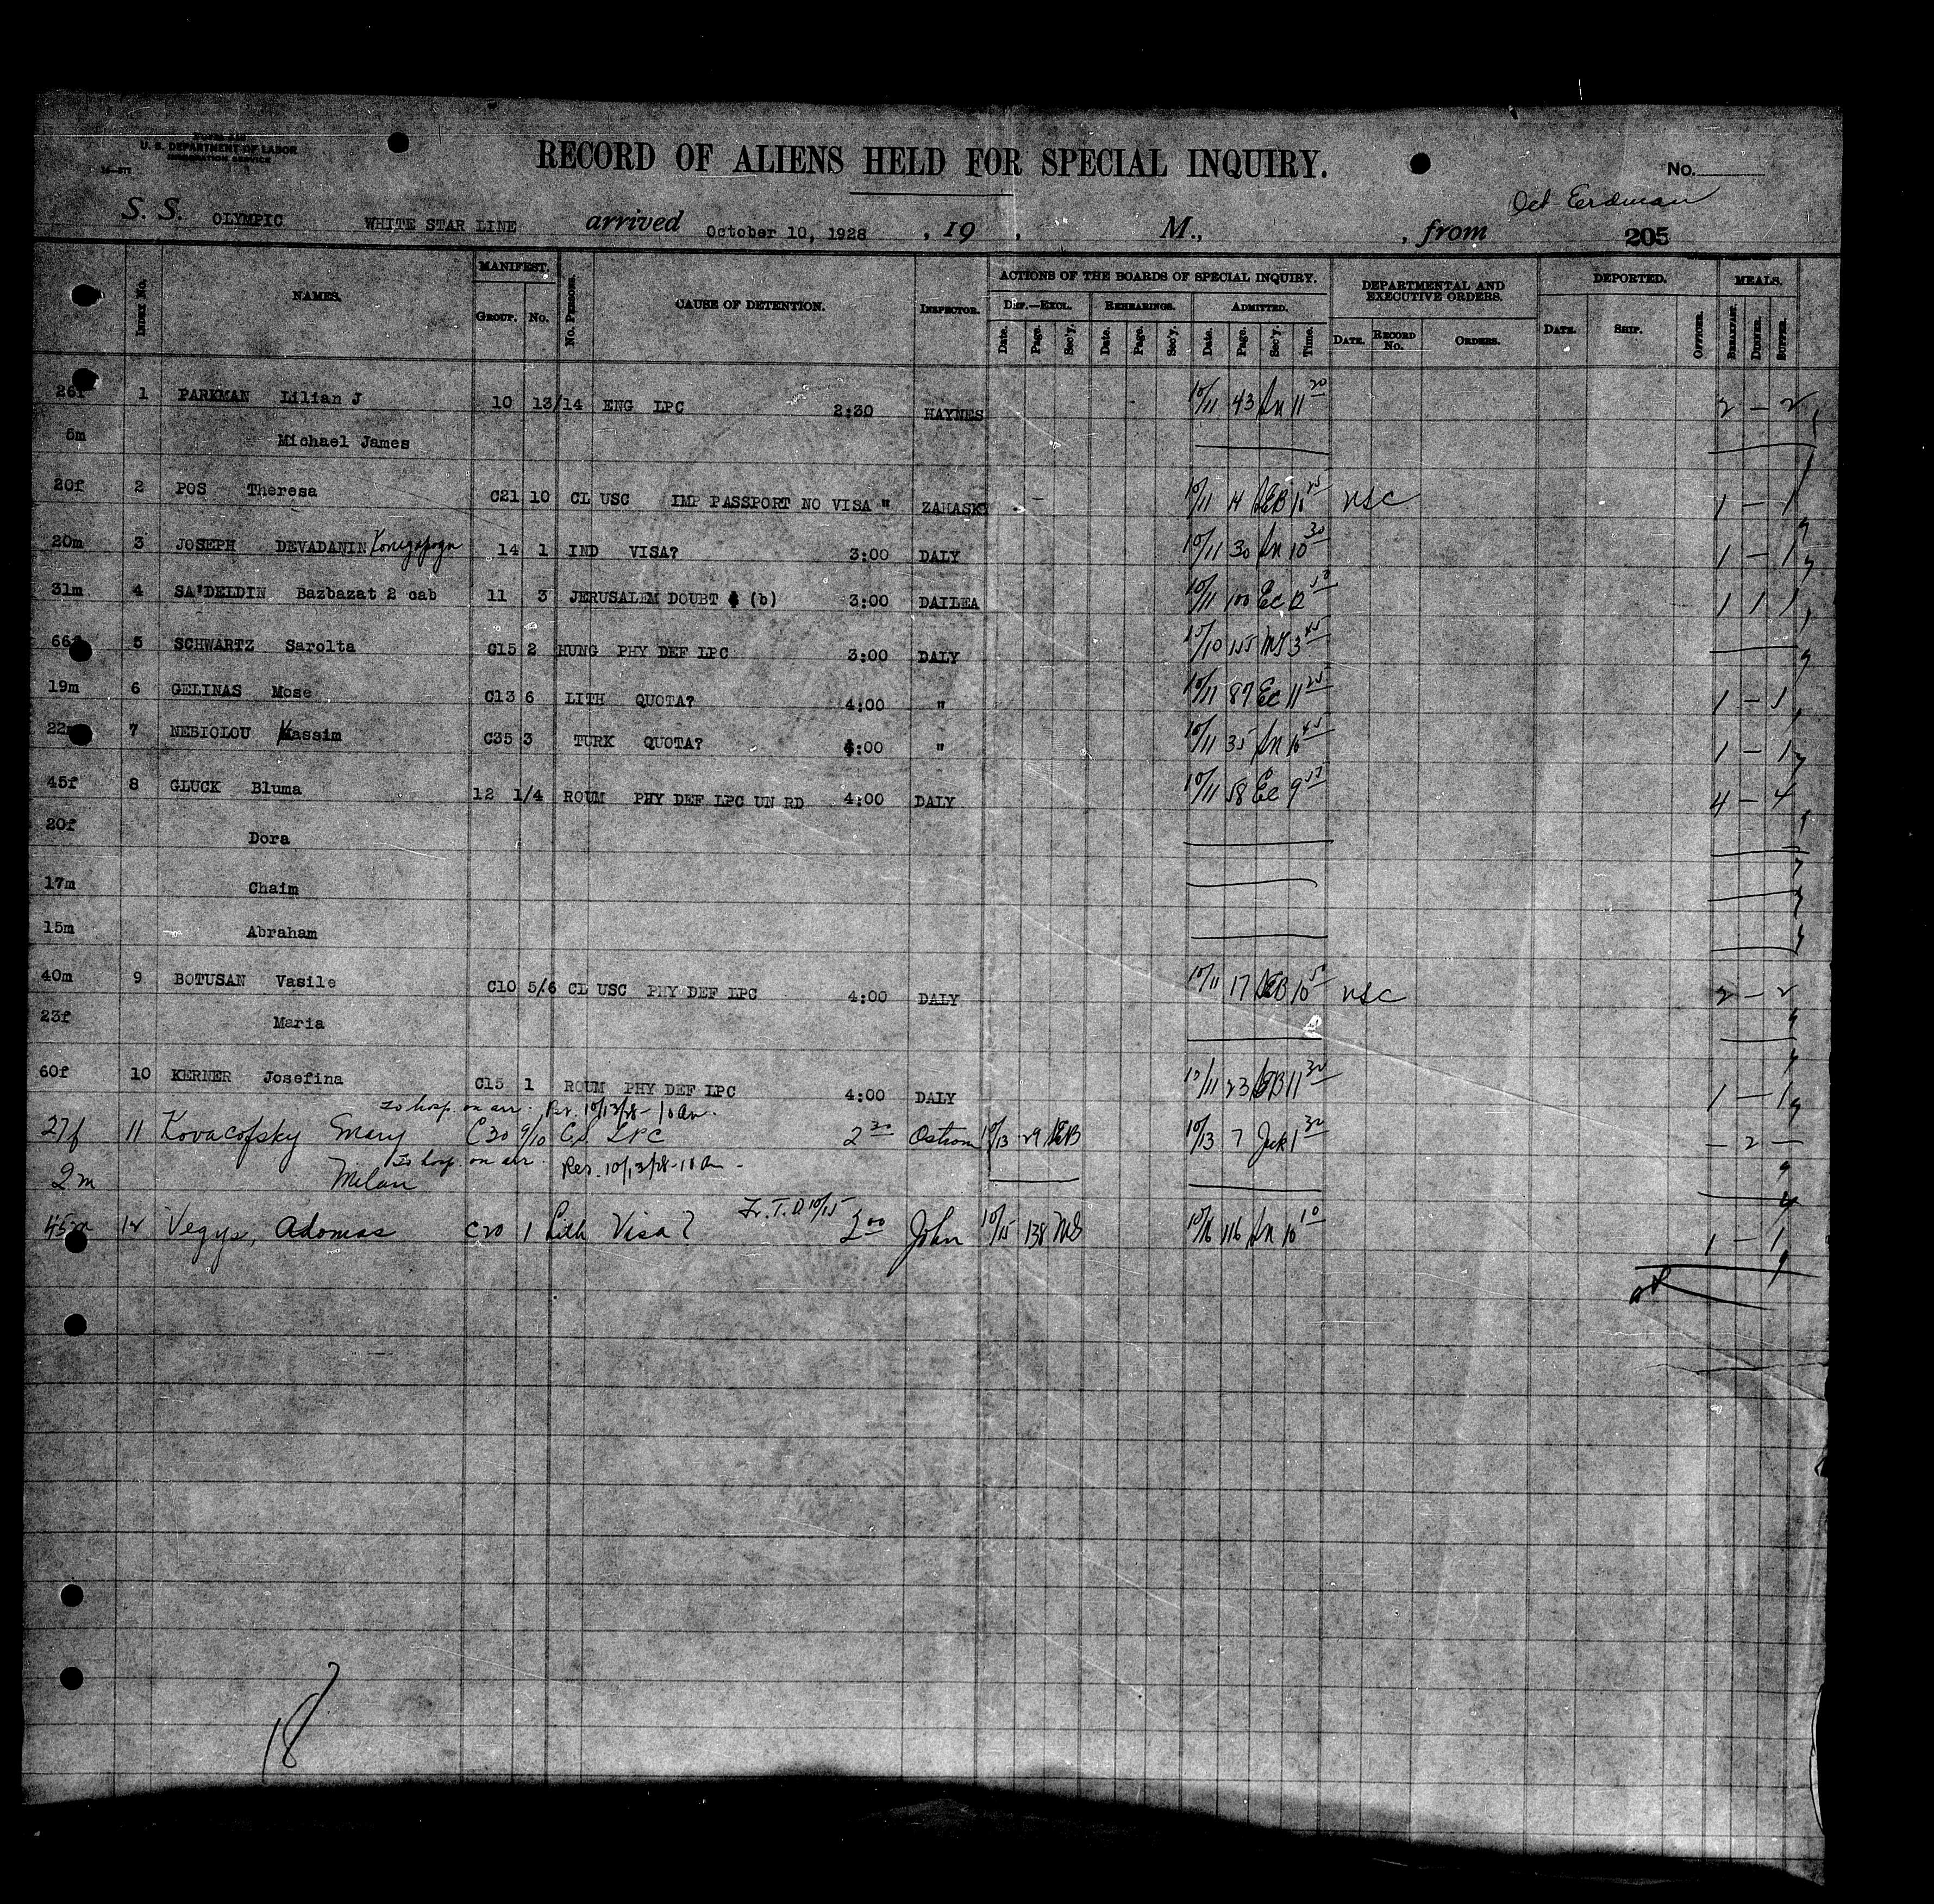 U. S. DEPARTMENT OF LABOR
IMMIGRATION SERVICE
RECORD OF ALIENS HELD FOR SPECIAL INQUIRY.
No.
Oct Eerdman
S. S. OLYMPIC WHITE STAR LINE arrived October 10, 1928 , 19 , M., , from 205
INDEX No. NAMES. MANIFEST. GROUP. No. No. PERSONS. CAUSE OF DETENTION. INSPECTOR. ACTIONS OF THE BOARDS OF SPECIAL INQUIRY. DEF.—EXCL. REHEARINGS. ADMITTED. Date. Page. Sec'y. Date. Page. Sec'y. Date. Page. Sec'y. Time. DEPARTMENTAL AND EXECUTIVE ORDERS. DATE. RECORD No. ORDERS. DEPORTED. DATE. SHIP. OFFICER. MEALS. BREAKFAST. DINNER. SUPPER.
26f 1 PARKMAN Lilian J 10 13/14 ENG LPC 2:30 HAYNES 10/11 43 11 20 2 — 2
5m Michael James
20f 2 POS Theresa C21 10 CL USC IMP PASSPORT NO VISA " ZAHASKY 10/11 14 SEB 10 25 USC 1 — 1
20m 3 JOSEPH DEVADANIN 14 1 IND VISA? 3:00 DALY 10/11 30 10 30 1 — 1
31m 4 SA'DELDIN Bazbazat 2 cab 11 3 JERUSALEM DOUBT (b) 3:00 DAILEA 10/11 100 Ec 12 50 1 1 1
66f 5 SCHWARTZ Sarolta C15 2 HUNG PHY DEF LPC 3:00 DALY 10/10 155 MS 3 45
19m 6 GELINAS Mose C13 6 LITH QUOTA? 4:00 " 10/11 87 Ec 11 25 1 — 1
22m 7 NEBIOLOU Kassim C35 3 TURK QUOTA? 4:00 " 10/11 35 10 45 1 — 1
45f 8 GLUCK Bluma 12 1/4 ROUM PHY DEF LPC UN RD 4:00 DALY 10/11 58 Ec 9 55 4 — 4
20f Dora
17m Chaim
15m Abraham
40m 9 BOTUSAN Vasile C10 5/6 CL USC PHY DEF LPC 4:00 DALY 10/11 17 SEB 10 50 USC 2 — 2
23f Maria
60f 10 KERNER Josefina C15 1 ROUM PHY DEF LPC 4:00 DALY 10/11 23 SEB 11 30 1 — 1
to hosp. on arr. Res. 10/13/28 - 10 am.
27f 11 Kovacofsky Mary C30 9/10 LPC 2 30 Ostrom 10/13 29 SEB 10/13 7 1 30 — 2 —
To hosp. on arr. Res. 10/13/28 - 10 am -
2m Milan
Fr. T. D 10/15
45m 12 Vegys, Adomas C20 1 Lith Visa? 2 00 John 10/15 138 MS 10/16 116 10 10 1 — 1
ok
18